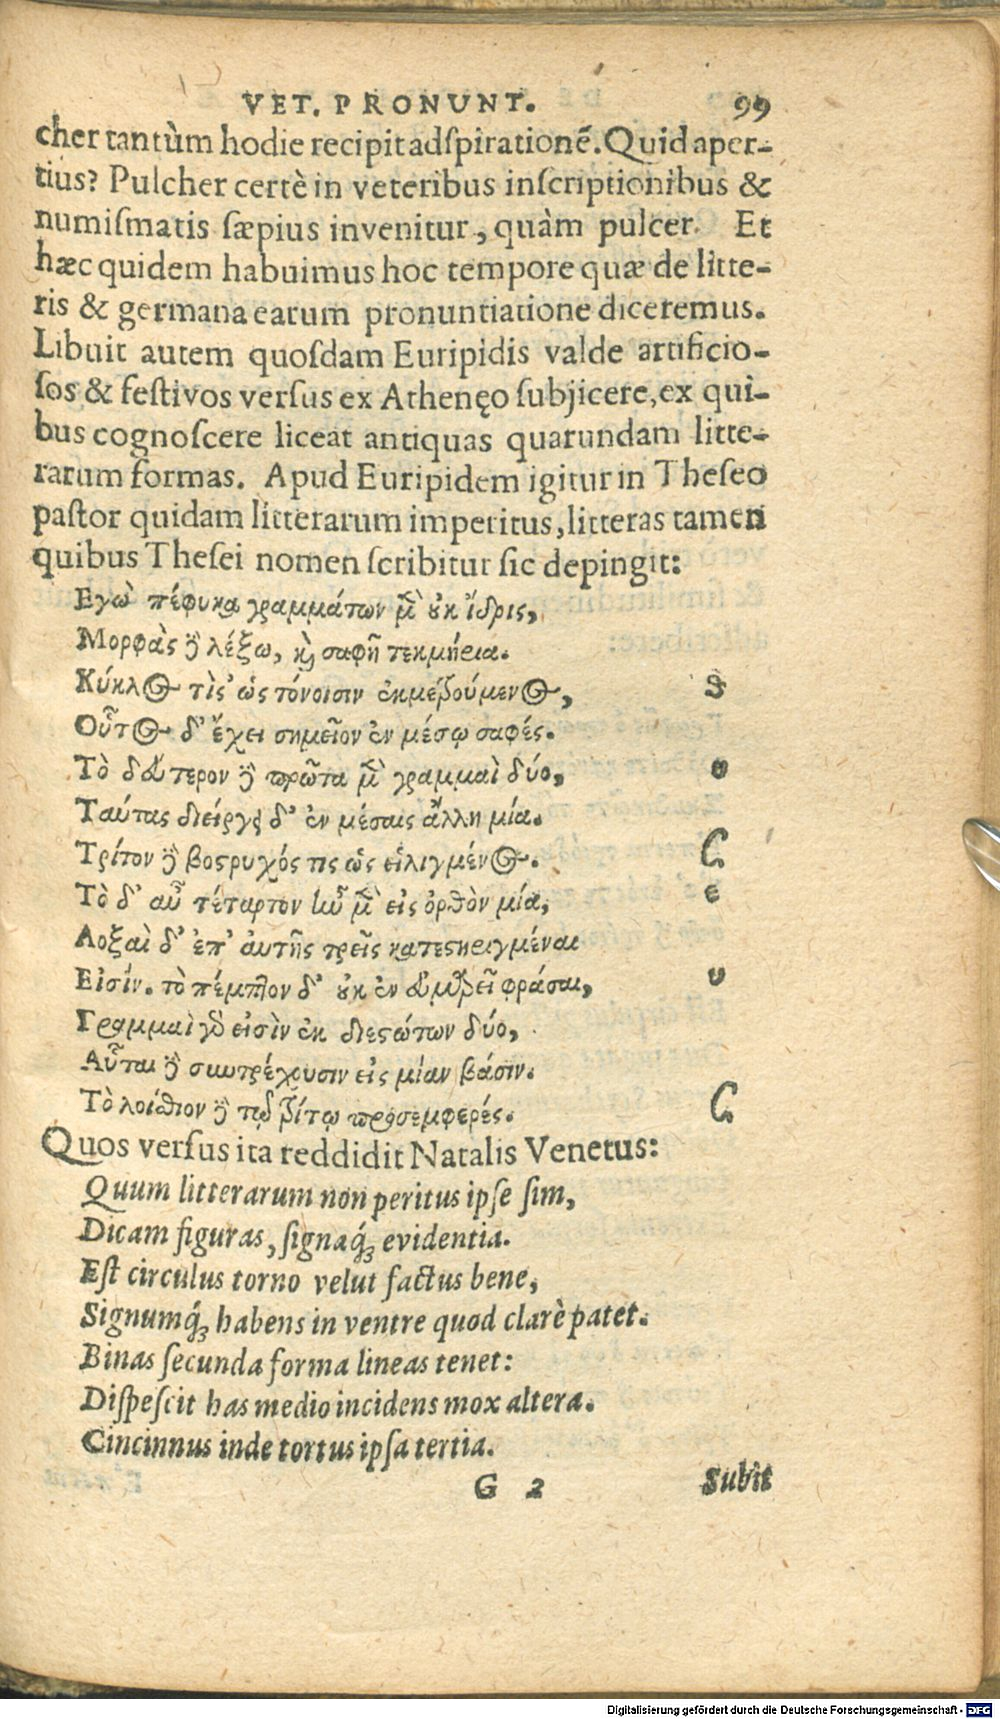 VET. PRONUNT. 99
cher tantùm hodie recipit adſpirationẽ. Quid aper-
tius? Pulcher certè in veteribus inſcriptionibus &
numiſmatis ſæpius invenitur, quàm pulcer. Et
hæc quidem habuimus hoc tempore quæ de litte-
ris & germana earum pronuntiatione diceremus.
Libuit autem quoſdam Euripidis valde artificio-
ſos & feſtivos verſus ex Athenęo ſubjicere, ex qui-
bus cognoſcere liceat antiquas quarundam litte-
rarum formas. Apud Euripidem igitur in Theſeo
paſtor quidam litterarum imperitus, litteras tamen
quibus Theſei nomen ſcribitur ſic depingit:
Εγὼ πέφυκα γραμμάτων μὲν ȣκ ἴδρις,
Μορφὰς δὲ λέξω, κὶ σαφῆ τεκμήρια.
Κύκλος τὶς ὡς τόνοισιν ἐκμεϮούμενος, ϑ
Οὗτος δ' ἔχει σημεῖον ἐν μέσῳ σαφές.
Τὸ δεύτερον δὲ πρῶτα μὲν γραμμαὶ δύο, η
Ταύτας διείργει δ' ἐν μέσαις ἄλλη μία.
Τρίτον δὲ βοςρυχός τις ὡς εἱλιγμένος. C
Τὸ δ' αὖ τέταρτον ἰὼ μὲν εἰς ὀρθὸν μία, ε
Λοξαὶ δ' ἐπ' ἀυτῆς τρεῖς κατεςηριγμέναι
Εἰσίν. τὸ πέμπτον δ' ȣκ ἐν εὐμαρεῖ φράσαι, υ
Γραμμαὶ γὸ εἰσὶν ἐκ διεςώτων δύο,
Αὗται δὲ σωτρέχȣσιν εἰς μίαν βάσιν.
Τὸ λοίσθιον δὲ τῷ τρίτῳ προσεμφερές. C
Quos verſus ita reddidit Natalis Venetus:
Quum litterarum non peritus ipſe ſim,
Dicam figuras, ſignaq́ꝫ evidentia.
Eſt circulus torno velut factus bene,
Signumq́ꝫ habens in ventre quod clarè patet.
Binas ſecunda forma lineas tenet:
Diſpeſcit has medio incidens mox altera.
Cincinnus inde tortus ipſa tertia.
G 2 Subit
Digitalisierung gefördert durch die Deutsche Forschungsgemeinschaft - DFG